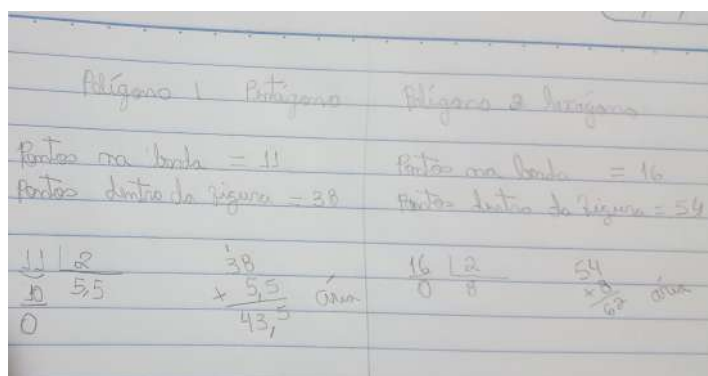 Polígono 1 Pentágono
Pontos na borda = 11
Pontos dentro da figura = 38
11 2
10 5,5
0
1
38
+ 5,5 área
43,5
Polígono 2 hexágono
Pontos na borda = 16
Pontos dentro da figura = 54
16 2
0 8
54
+ 8 área
62